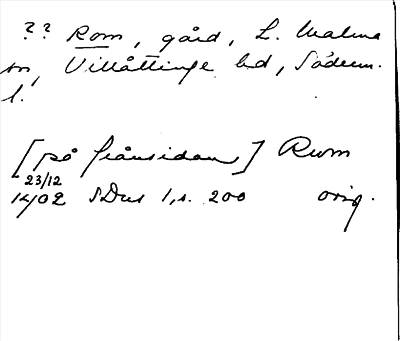 ?? Rom, gård, L. Malma
sn, Villåttinge hd, Söderm.
l.
[på frånsidan] Rwm
23/12
1402 SDns 1, s. 200 orig.